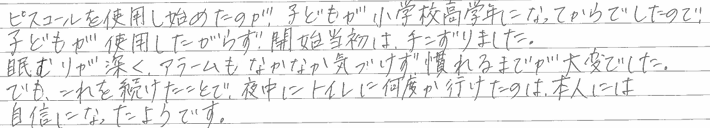 ピスコールを使用し始めたのが、子どもが小学校高学年になってからでしたので、
子どもが使用したがらず、開始当初は、手こずりました。
眠むりが深く、アラームもなかなか気づけず慣れるまでが大変でした。
でも、これを続けたことで、夜中にトイレに何度か行けたのは、本人には
自信になったようです。